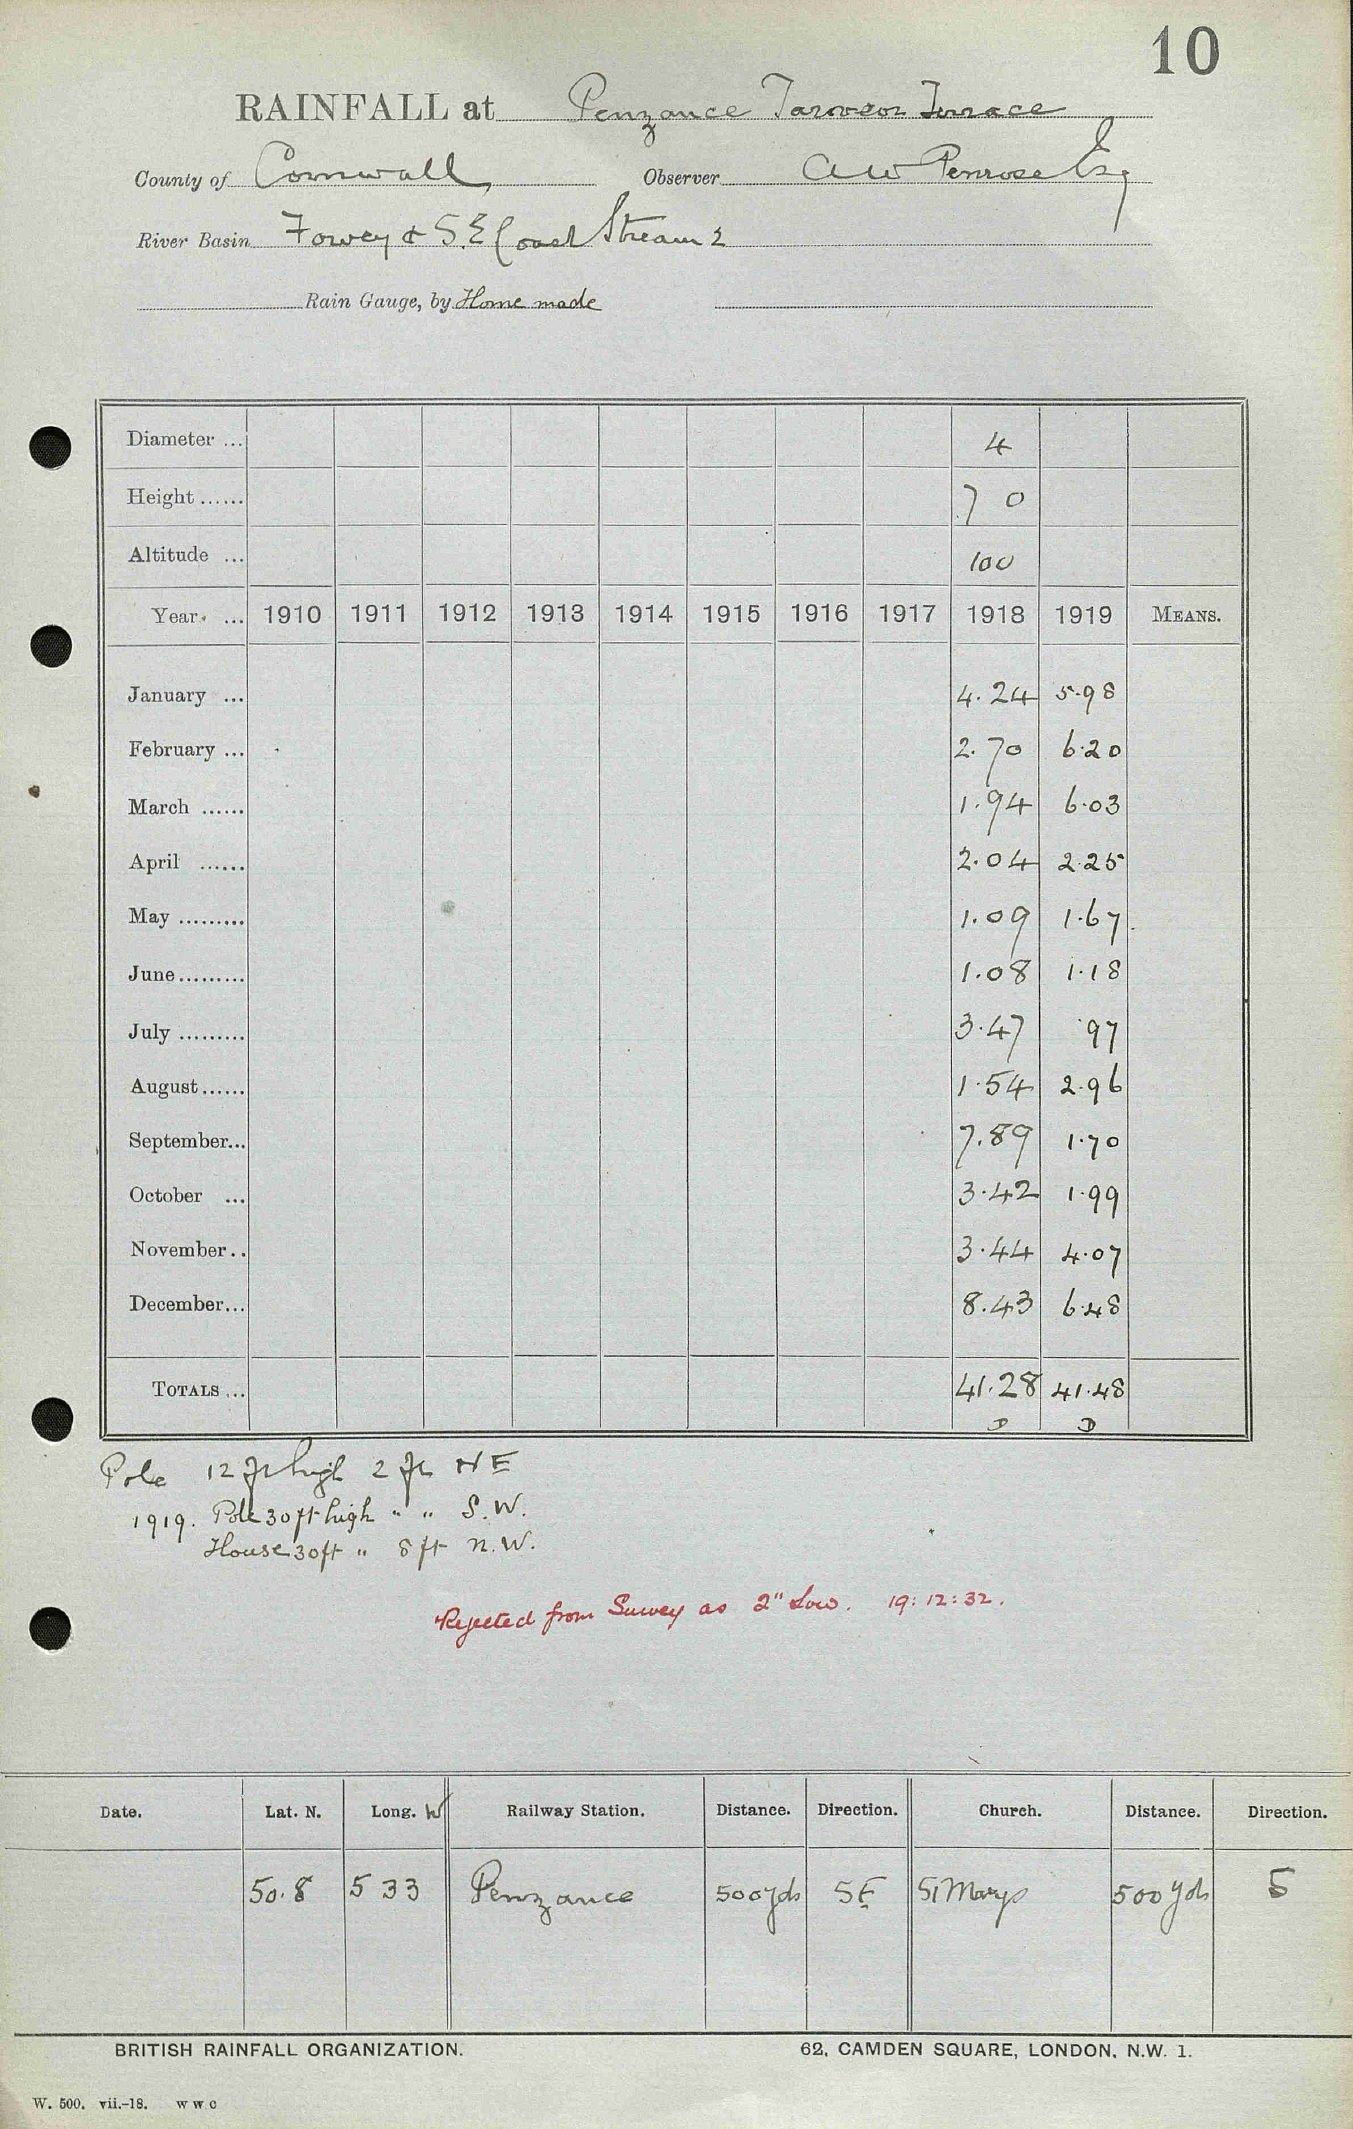 10
RAINFALL at Penzance Tarveor Terrace
County of Cornwall Observer A W Penrose Esq
River Basin Fowey & S.E Coast Streams
Rain Gauge, by Home made
Diameter ... 4
Height ...... 7 0
Altitude ... 100
Year ... 1910 1911 1912 1913 1914 1915 1916 1917 1918 1919 MEANS.
January ... 4.24 5.98
February ... 2.70 6.20
March ...... 1.94 6.03
April ...... 2.04 2.25
May ......... 1.09 1.67
June......... 1.08 1.18
July ......... 3.47 .97
August...... 1.54 2.96
September... 7.89 1.70
October ... 3.42 1.99
November.. 3.44 4.07
December... 8.43 6.48
TOTALS ... 41.28 41.48
D D
Pole 12 ft high 2 ft NE
1919. Pole 30 ft high " " S.W.
House 30ft " 8 ft N.W.
Rejected from Survey as 2" low. 19:12:32.
Date. Lat. N. Long. W Railway Station. Distance. Direction. Church. Distance. Direction.
50.8 5 33 Penzance 500yds SE St Marys 500 yds S
BRITISH RAINFALL ORGANIZATION. 62, CAMDEN SQUARE, LONDON, N.W. 1.
W. 500. vii.-18. W W C